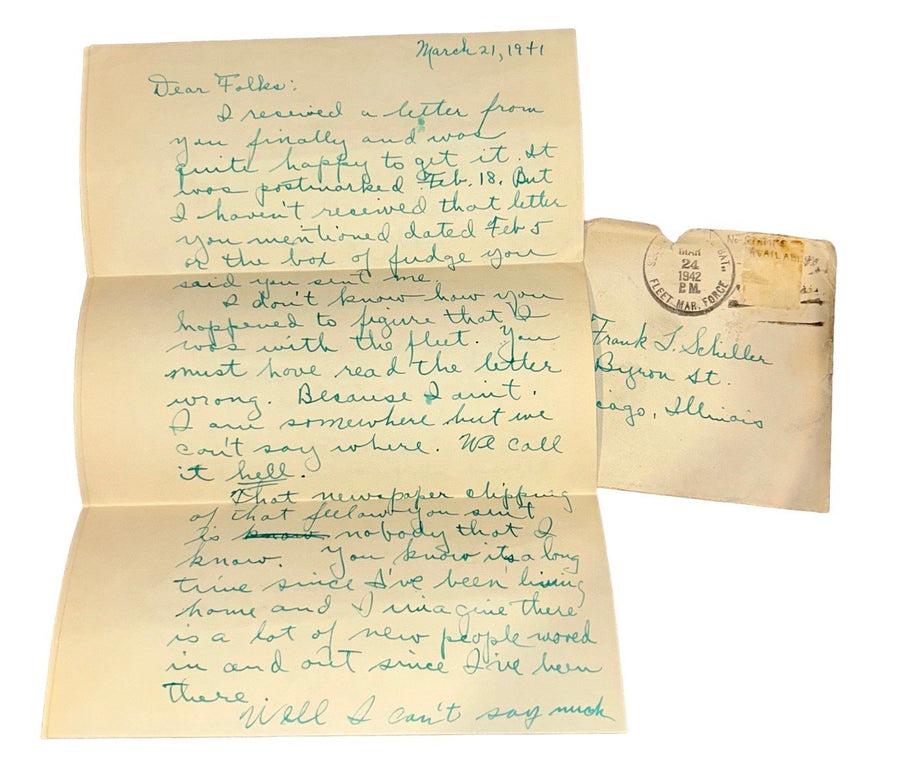 March 21, 1941
Dear Folks:
I received a letter from
you finally and was
quite happy to get it. It
was postmarked Feb. 18. But
I haven't received that letter
you mentioned dated Feb 5
or the box of fudge you
said you sent me.
I don't know how you
happened to figure that I
was with the fleet. You
must have read the letter
wrong. Because I ain't.
I am somewhere but we
can't say where. We call
it hell.
That newspaper clipping
of that fellow you sent
is know nobody that I
know. You know its a long
time since I've been living
home and I imagine there
is a lot of new people moved
in and out since I've been
there.
Well I can't say much
MAR
24
1942
P.M.
FLEET MAR. FORCE
No STAMPS
AVAILABLE
Frank J. Schiller
Byron St.
cago, Illinois